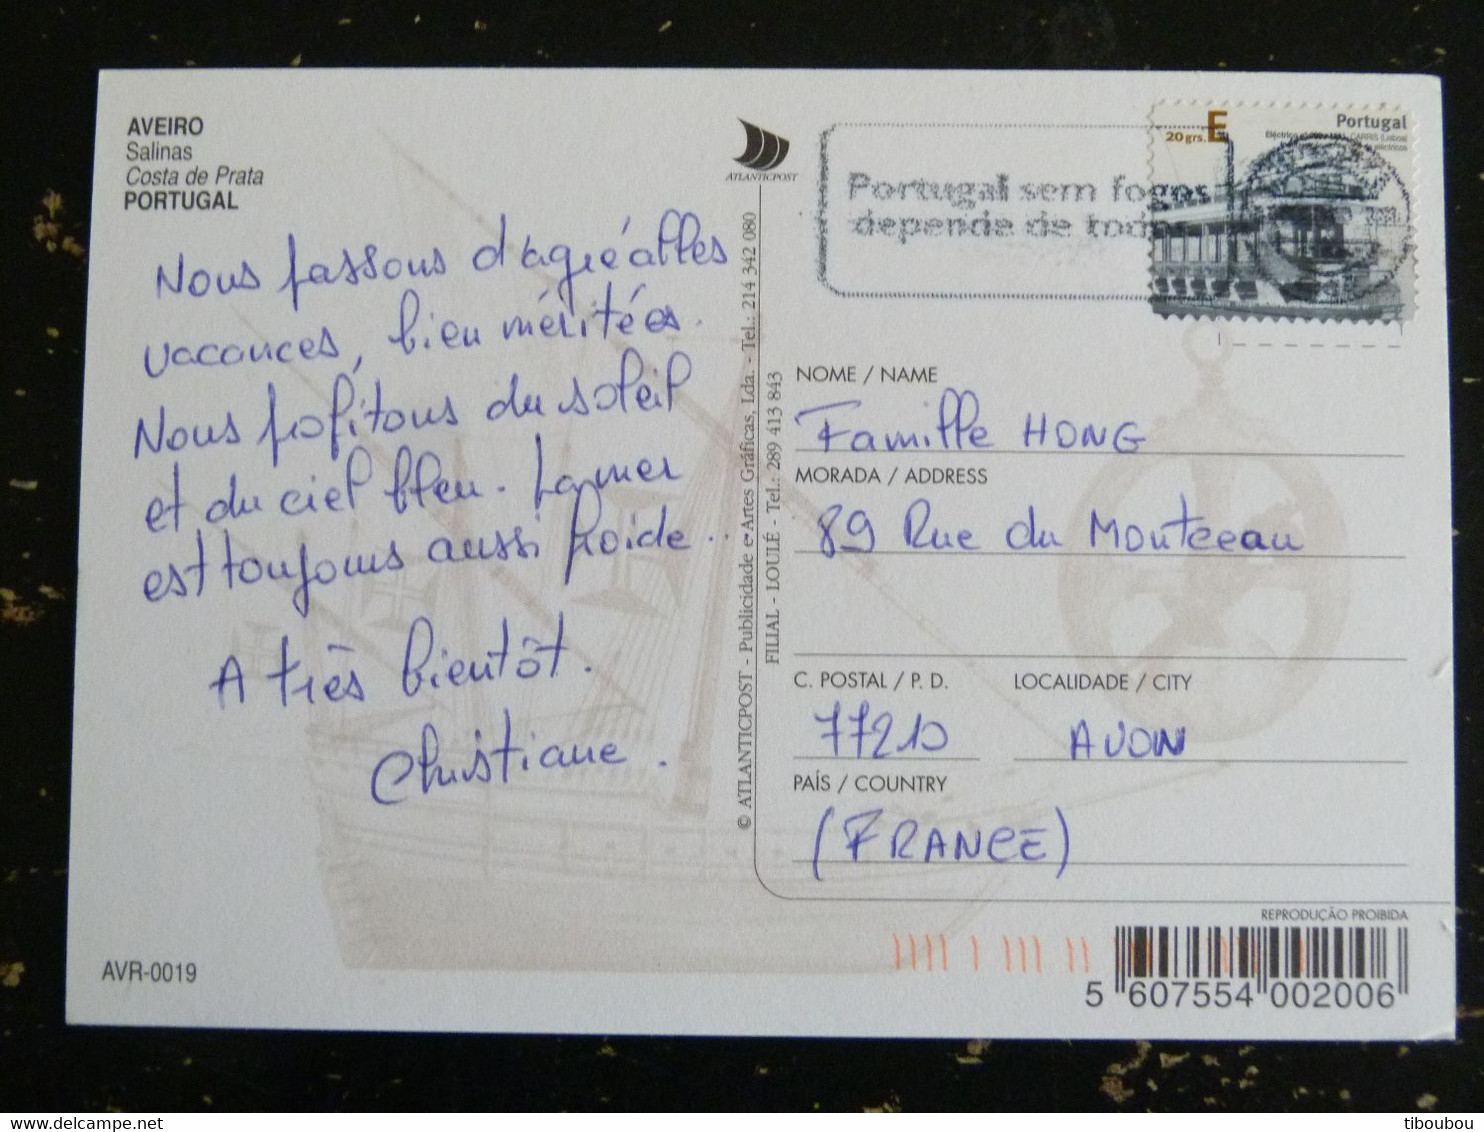 AVEIRO
Salinas
Costa de Prata
PORTUGAL
Nous passons d'agréables
vacances, bien méritées.
Nous profitons du soleil
et du ciel bleu. La mer
est toujours aussi froide..
A très bientôt.
Christiane.
AVR-0019
ATLANTICPOST
© ATLANTICPOST - Publicidade e Artes Gráficas, Lda. - Tel.: 214 342 080
FILIAL - LOULÉ - Tel.: 289 413 843
Portugal sem fogos
depende de todos
20 grs. E
Portugal
NOME / NAME
Famille HONG
MORADA / ADDRESS
89 Rue du Montceau
C. POSTAL / P. D.
LOCALIDADE / CITY
77210
AVON
PAÍS / COUNTRY
(FRANCE)
REPRODUÇÃO PROIBIDA
5 607554 002006
tiboubou